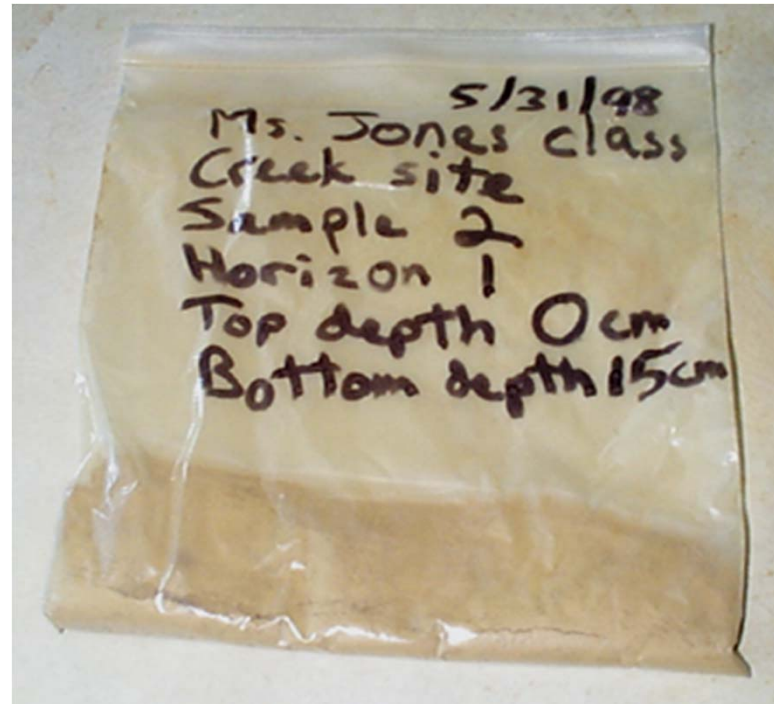 5/31/98
Ms. Jones class
Creek site
Sample 2
Horizon 1
Top depth 0 cm
Bottom depth 15 cm